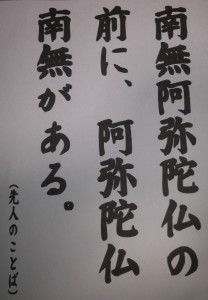 南無阿弥陀仏の
前に、阿弥陀仏
南無がある。
（先人のことば）